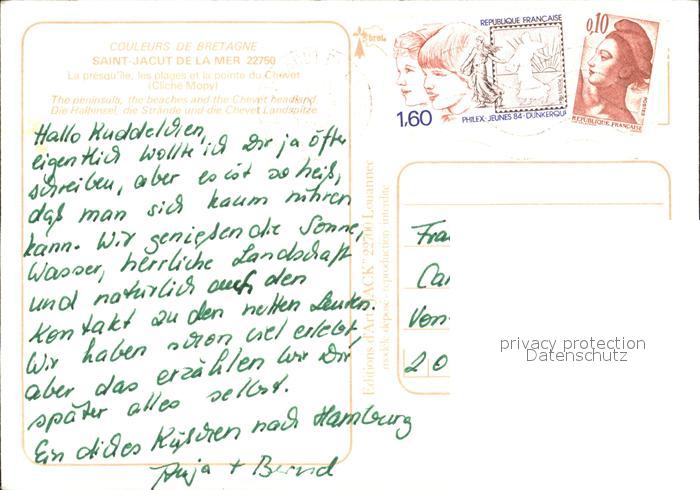 COULEURS DE BRETAGNE
SAINT-JACUT DE LA MER 22750
La presqu'île, les plages et la pointe du Chevet
(Cliché Mopy)
The peninsula, the beaches and the Chevet headland.
Die Halbinsel, die Strände und die Chevet Landspitze
Hallo Kuddelchen,
eigentlich wollte ich Dir ja öfter
schreiben, aber es ist so heiß,
daß man sich kaum rühren
kann. Wir genießen die Sonne,
Wasser, herrliche Landschaft
und natürlich auch den
Kontakt zu den netten Leuten.
Wir haben schon viel erlebt,
aber das erzählen wir Dir
später alles selbst.
Ein dickes Küßchen nach Hamburg
Anja + Bernd
Editions d'Art "JACK" 22700 Louannec
modèle déposé - reproduction interdite
REPUBLIQUE FRANÇAISE
1,60
PHILEX-JEUNES 84-DUNKERQU
0,10
POSTES
REPUBLIQUE FRANÇAISE
Fra
Car
Von
20
privacy protection
Datenschutz